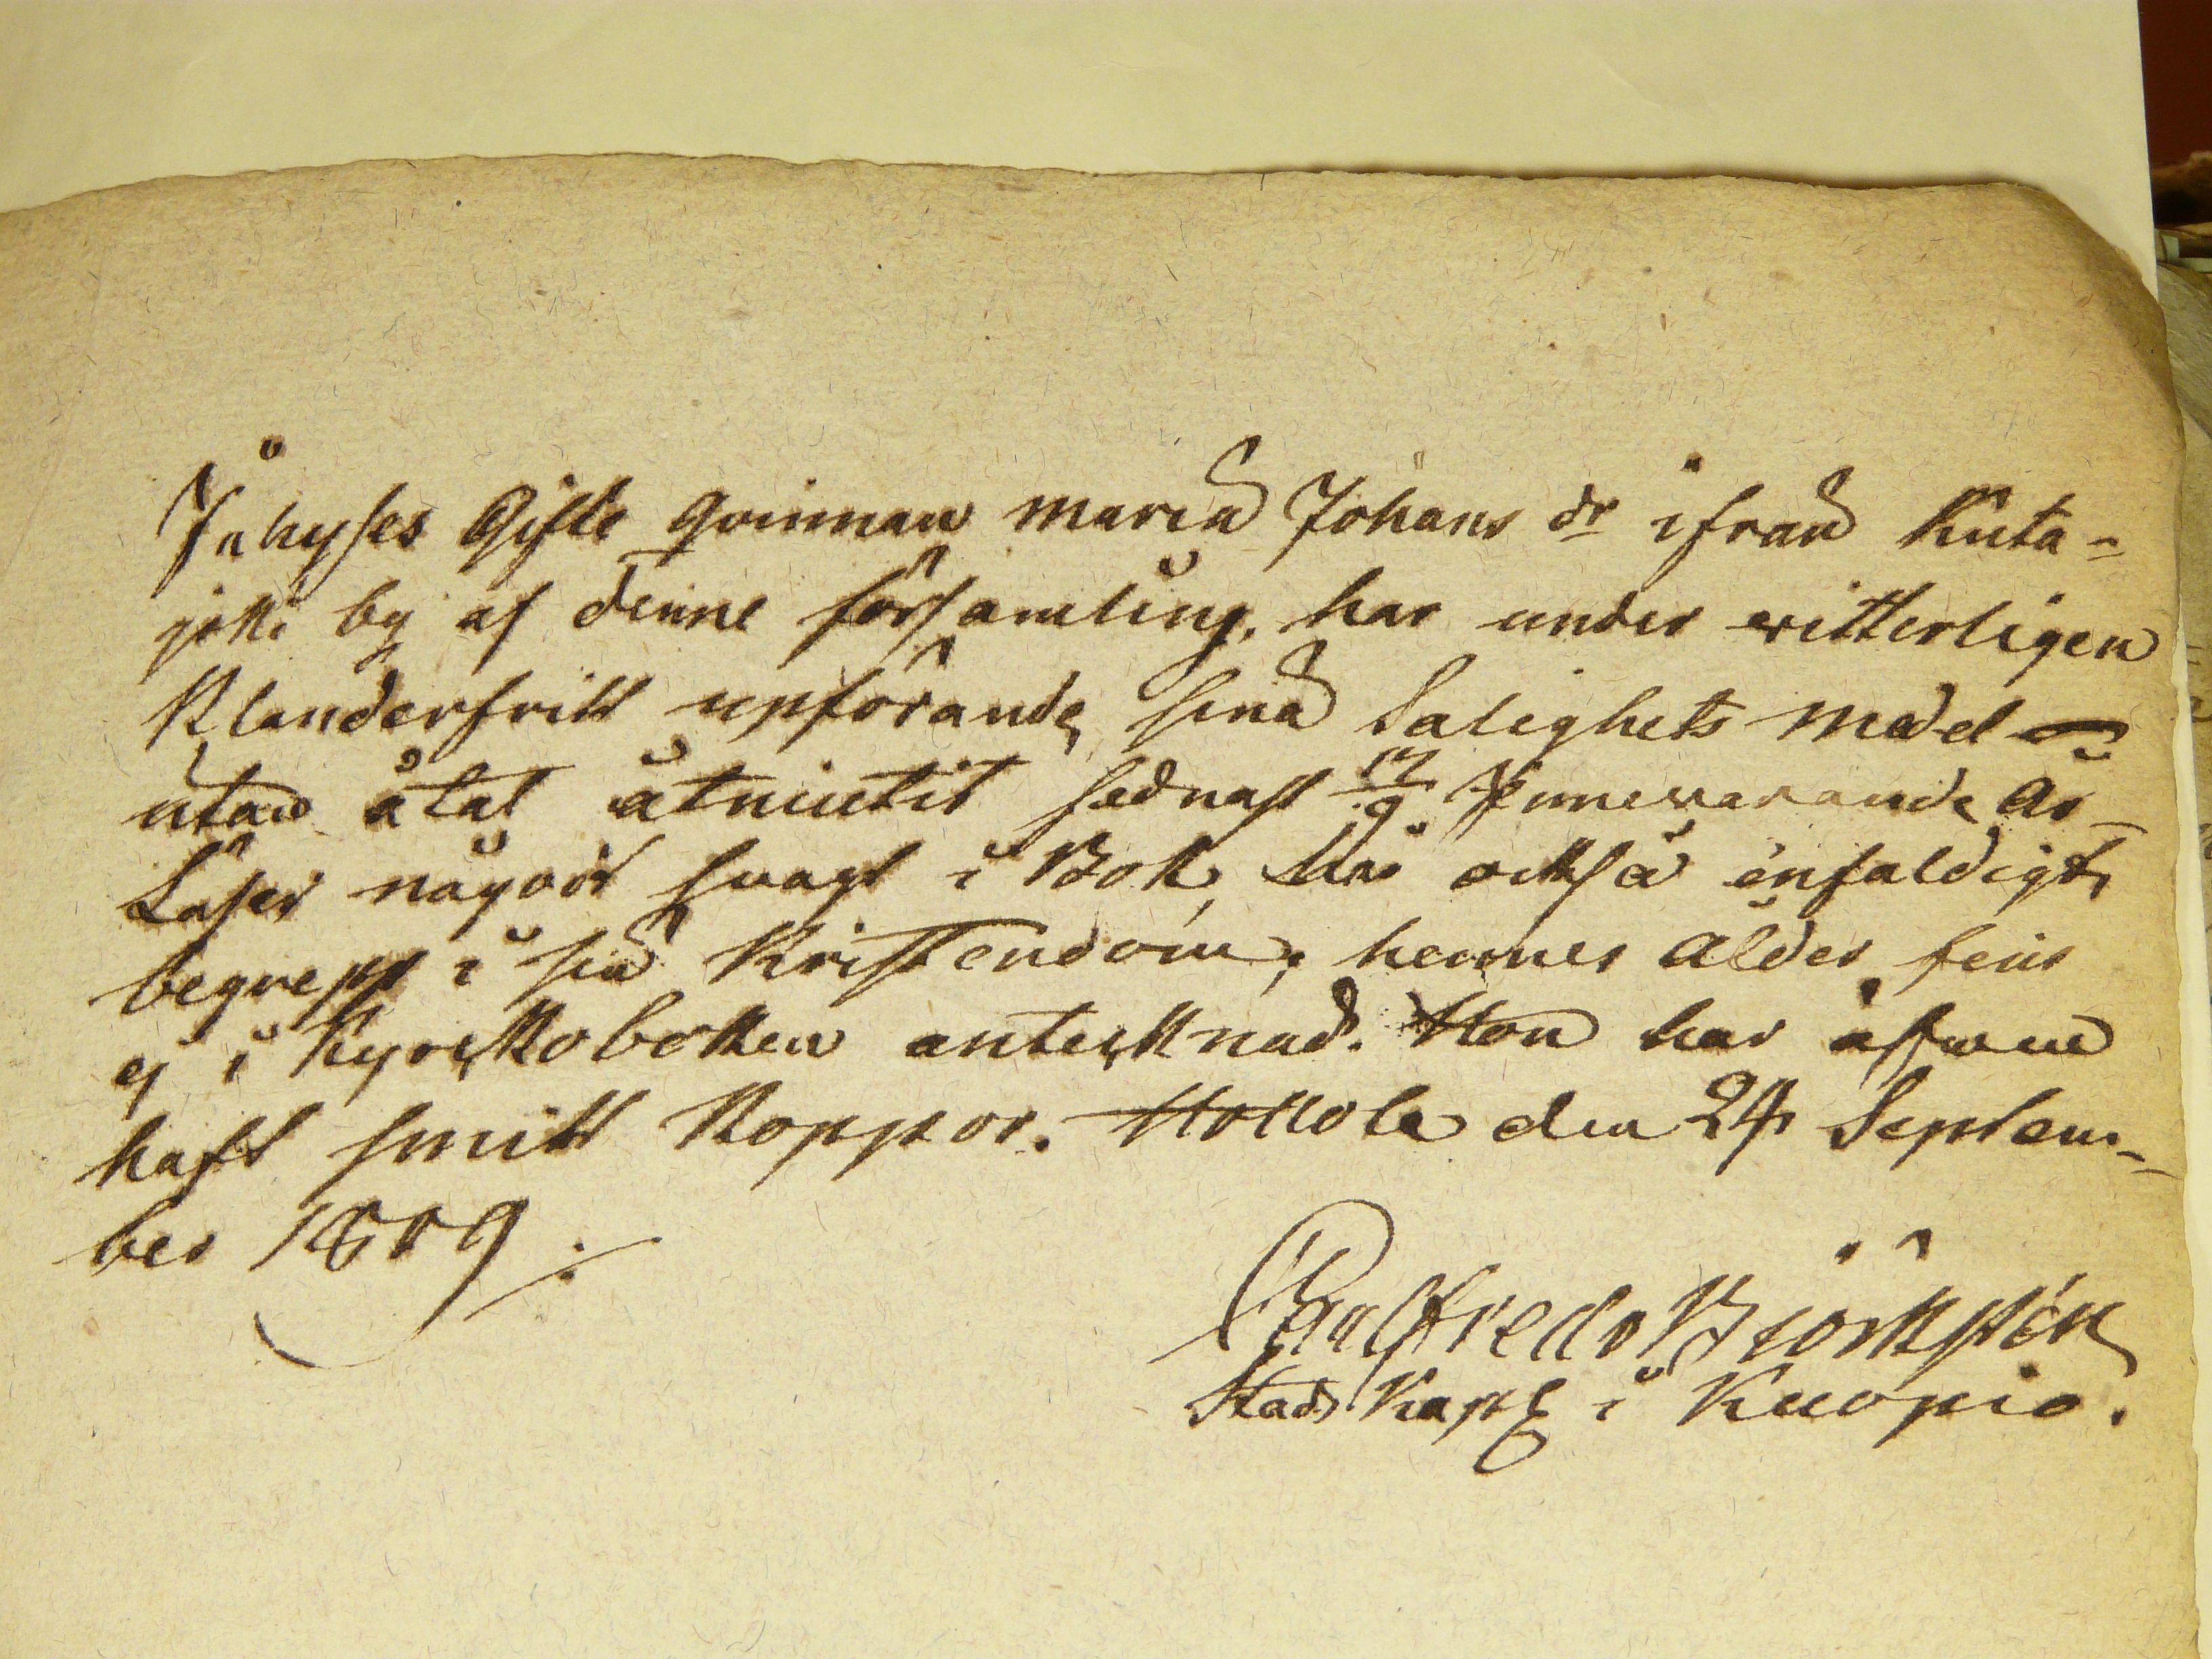 Inhyses Gifte qvinnan Maria Johans dr ifrån Kuta-
joki by af denne församling, har under witterligen
Klanderfritt upförande, sina Salighets medel
utan åtal åtniutit sednast 17/9 Innewarande År
Läser någott svagt i Bok, har också enfaldigt
begrepp i sin Kristendom; hennes ålder fins
ej i Kyrckoboken antecknad. Hon har äfwen
haft smitt Koppor. Hollola den 24 Septem-
ber 1809
Stads Kapl i Kuopio.